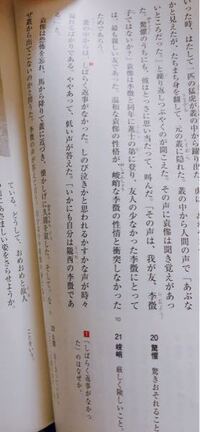 いった時、はたして一匹の猛虎が叢の中から躍り出た。
かと見えたが、たちまち身を翻して、元の叢に隠れた。叢の中から人間の声で「あぶな
いところだった。」と繰り返しつぶやくのが聞こえた。その声に袁傪は聞き覚えがあっ
た。驚懼のうちにも、彼はとっさに思い当たって、叫んだ。「その声は、我が友、李徴
子ではないか？」袁傪は李徴と同年に進士の第に登り、友人の少なかった李徴にとって
は、最も親しい友であった。温和な袁傪の性格が、峻峭な李徴の性情と衝突しなかった
ためであろう。
叢の中からは、しばらく返事がなかった。しのび泣きかと思われるかすかな声が時々
漏れるばかりである。ややあって、低い声が答えた。「いかにも自分は隴西の李徴であ
袁傪は恐怖を忘れ、馬から降りて叢に近づき、懐かしげに久闊を叙した。そして、な
ぜ叢から出てこないのかと問うた。
20 驚懼 驚きおそれること
21 峻峭 厳しく険しいこと。
1 「しばらく返事がなかっ
た」のはなぜか。
ている。どうして、おめおめと故人
にあさましい姿をさらせようか。